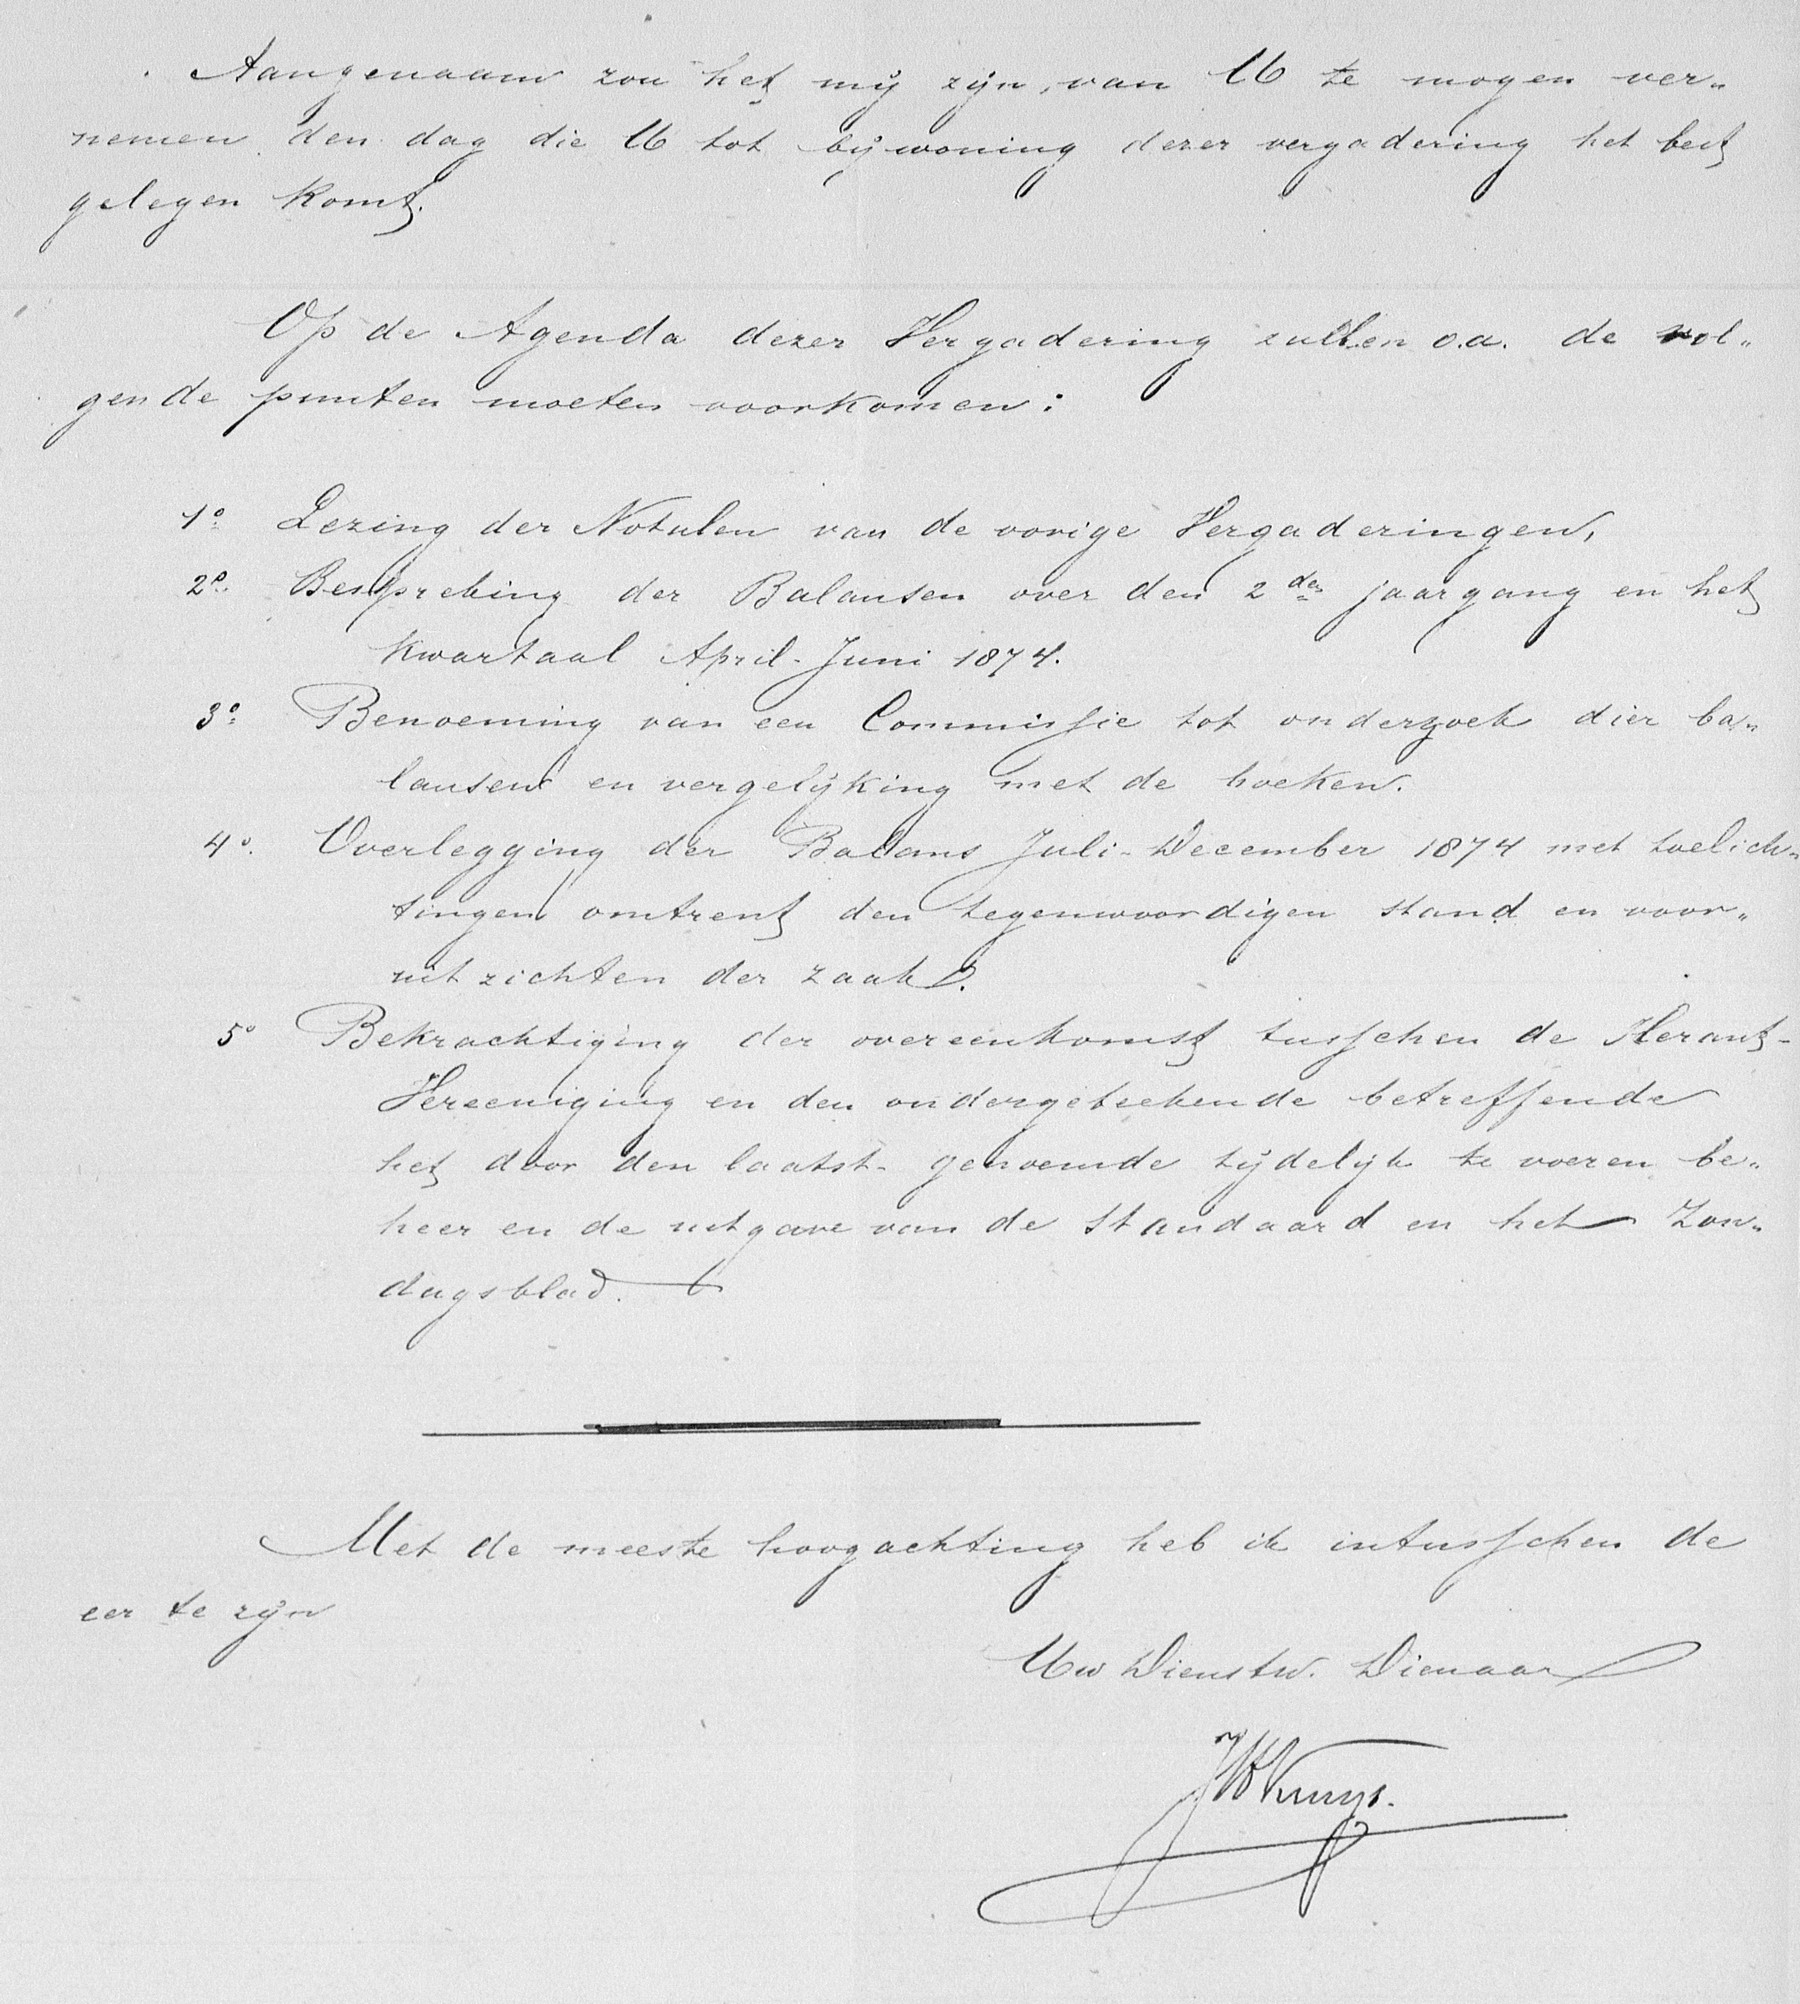 Aangenaam zou het mij zijn, van U te mogen ver„
nemen den dag die U tot bijwoning dezer vergadering het best
gelegen komt.
Op de Agenda dezer Vergadering zullen o.a. de vol„
gende punten moeten voorkomen:
1º Lezing der Notulen van de vorige Vergaderingen,
2º. Bespreking der Balansen over den 2den jaargang en het
kwartaal April-Juni 1874.
3º Benoeming van een Commissie tot onderzoek dier ba„
lansen en vergelijking met de boeken.
4º. Overlegging der Balans Juli-December 1874 met toelich„
tingen omtrent den tegenwoordigen stand en voor„
uitzichten der zaak.
5º Bekrachtiging der overeenkomst tusschen de Herant-
Vereeniging en den ondergeteekende betreffende
het door den laatst-genoemde tijdelijk te voeren be„
heer en de uitgave van de Standaard en het Zon„
dagsblad.
Met de meeste hoogachting heb ik intusschen de
eer te zijn
Uw Dienstw. Dienaar